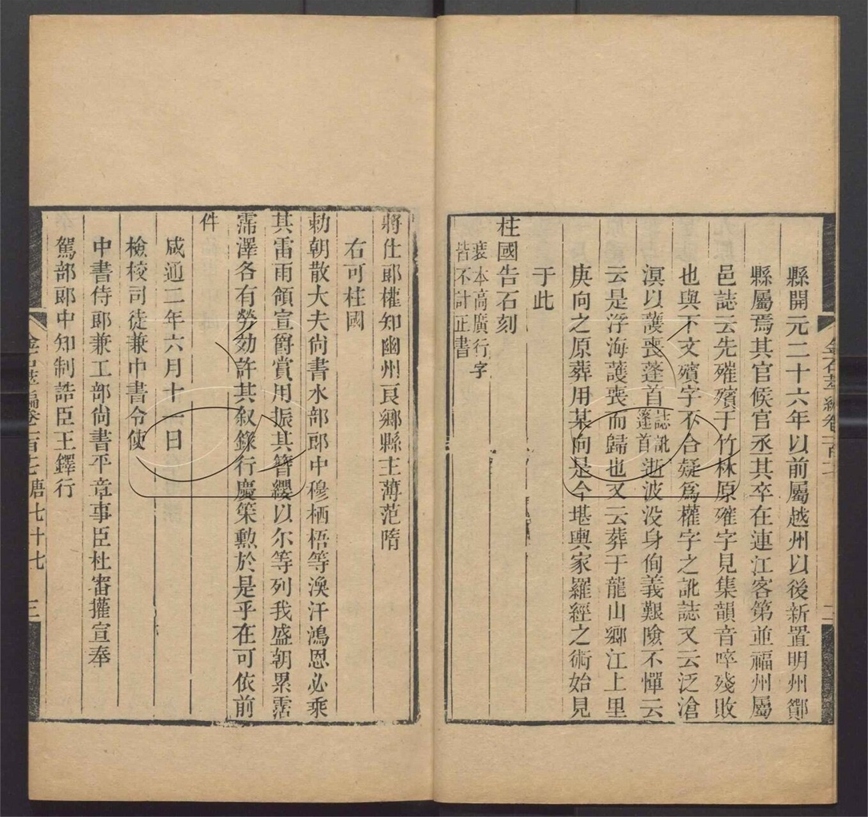 縣開元二十六年以前屬越州以後新置明州鄮
縣屬焉其官候官丞其卒在連江客第並福州屬
邑誌云先殯殯于竹林原殩字見集韻音啐殘敗
也與下文殯字不合疑爲權字之訛誌又云泛滄
溟以護喪蓬首誌訛蓬首逝波没身徇義艱險不憚云
云是浮海護喪而歸也又云葬于龍山鄉江上里
庚向之原葬用某向是今堪輿家羅經之術始見
于此
柱國告石刻
裴本高廣行字
皆不計正書
將仕郎權知幽州良鄉縣主薄范隋
右可柱國
勅朝散大夫尚書水部郎中穆栖梧等渙汗鴻恩必乘
其雷雨領宣爵賞用振其簪纓以尔等列我盛朝累霑
霈澤各有勞効許其叙錄行慶策勲於是乎在可依前
件
咸通二年六月十一日
檢校司徒兼中書令使
中書侍郎兼工部尚書平章事臣杜審權宣奉
駕部郎中知制誥臣王鐸行
金石萃編卷一百七 唐七十七
三